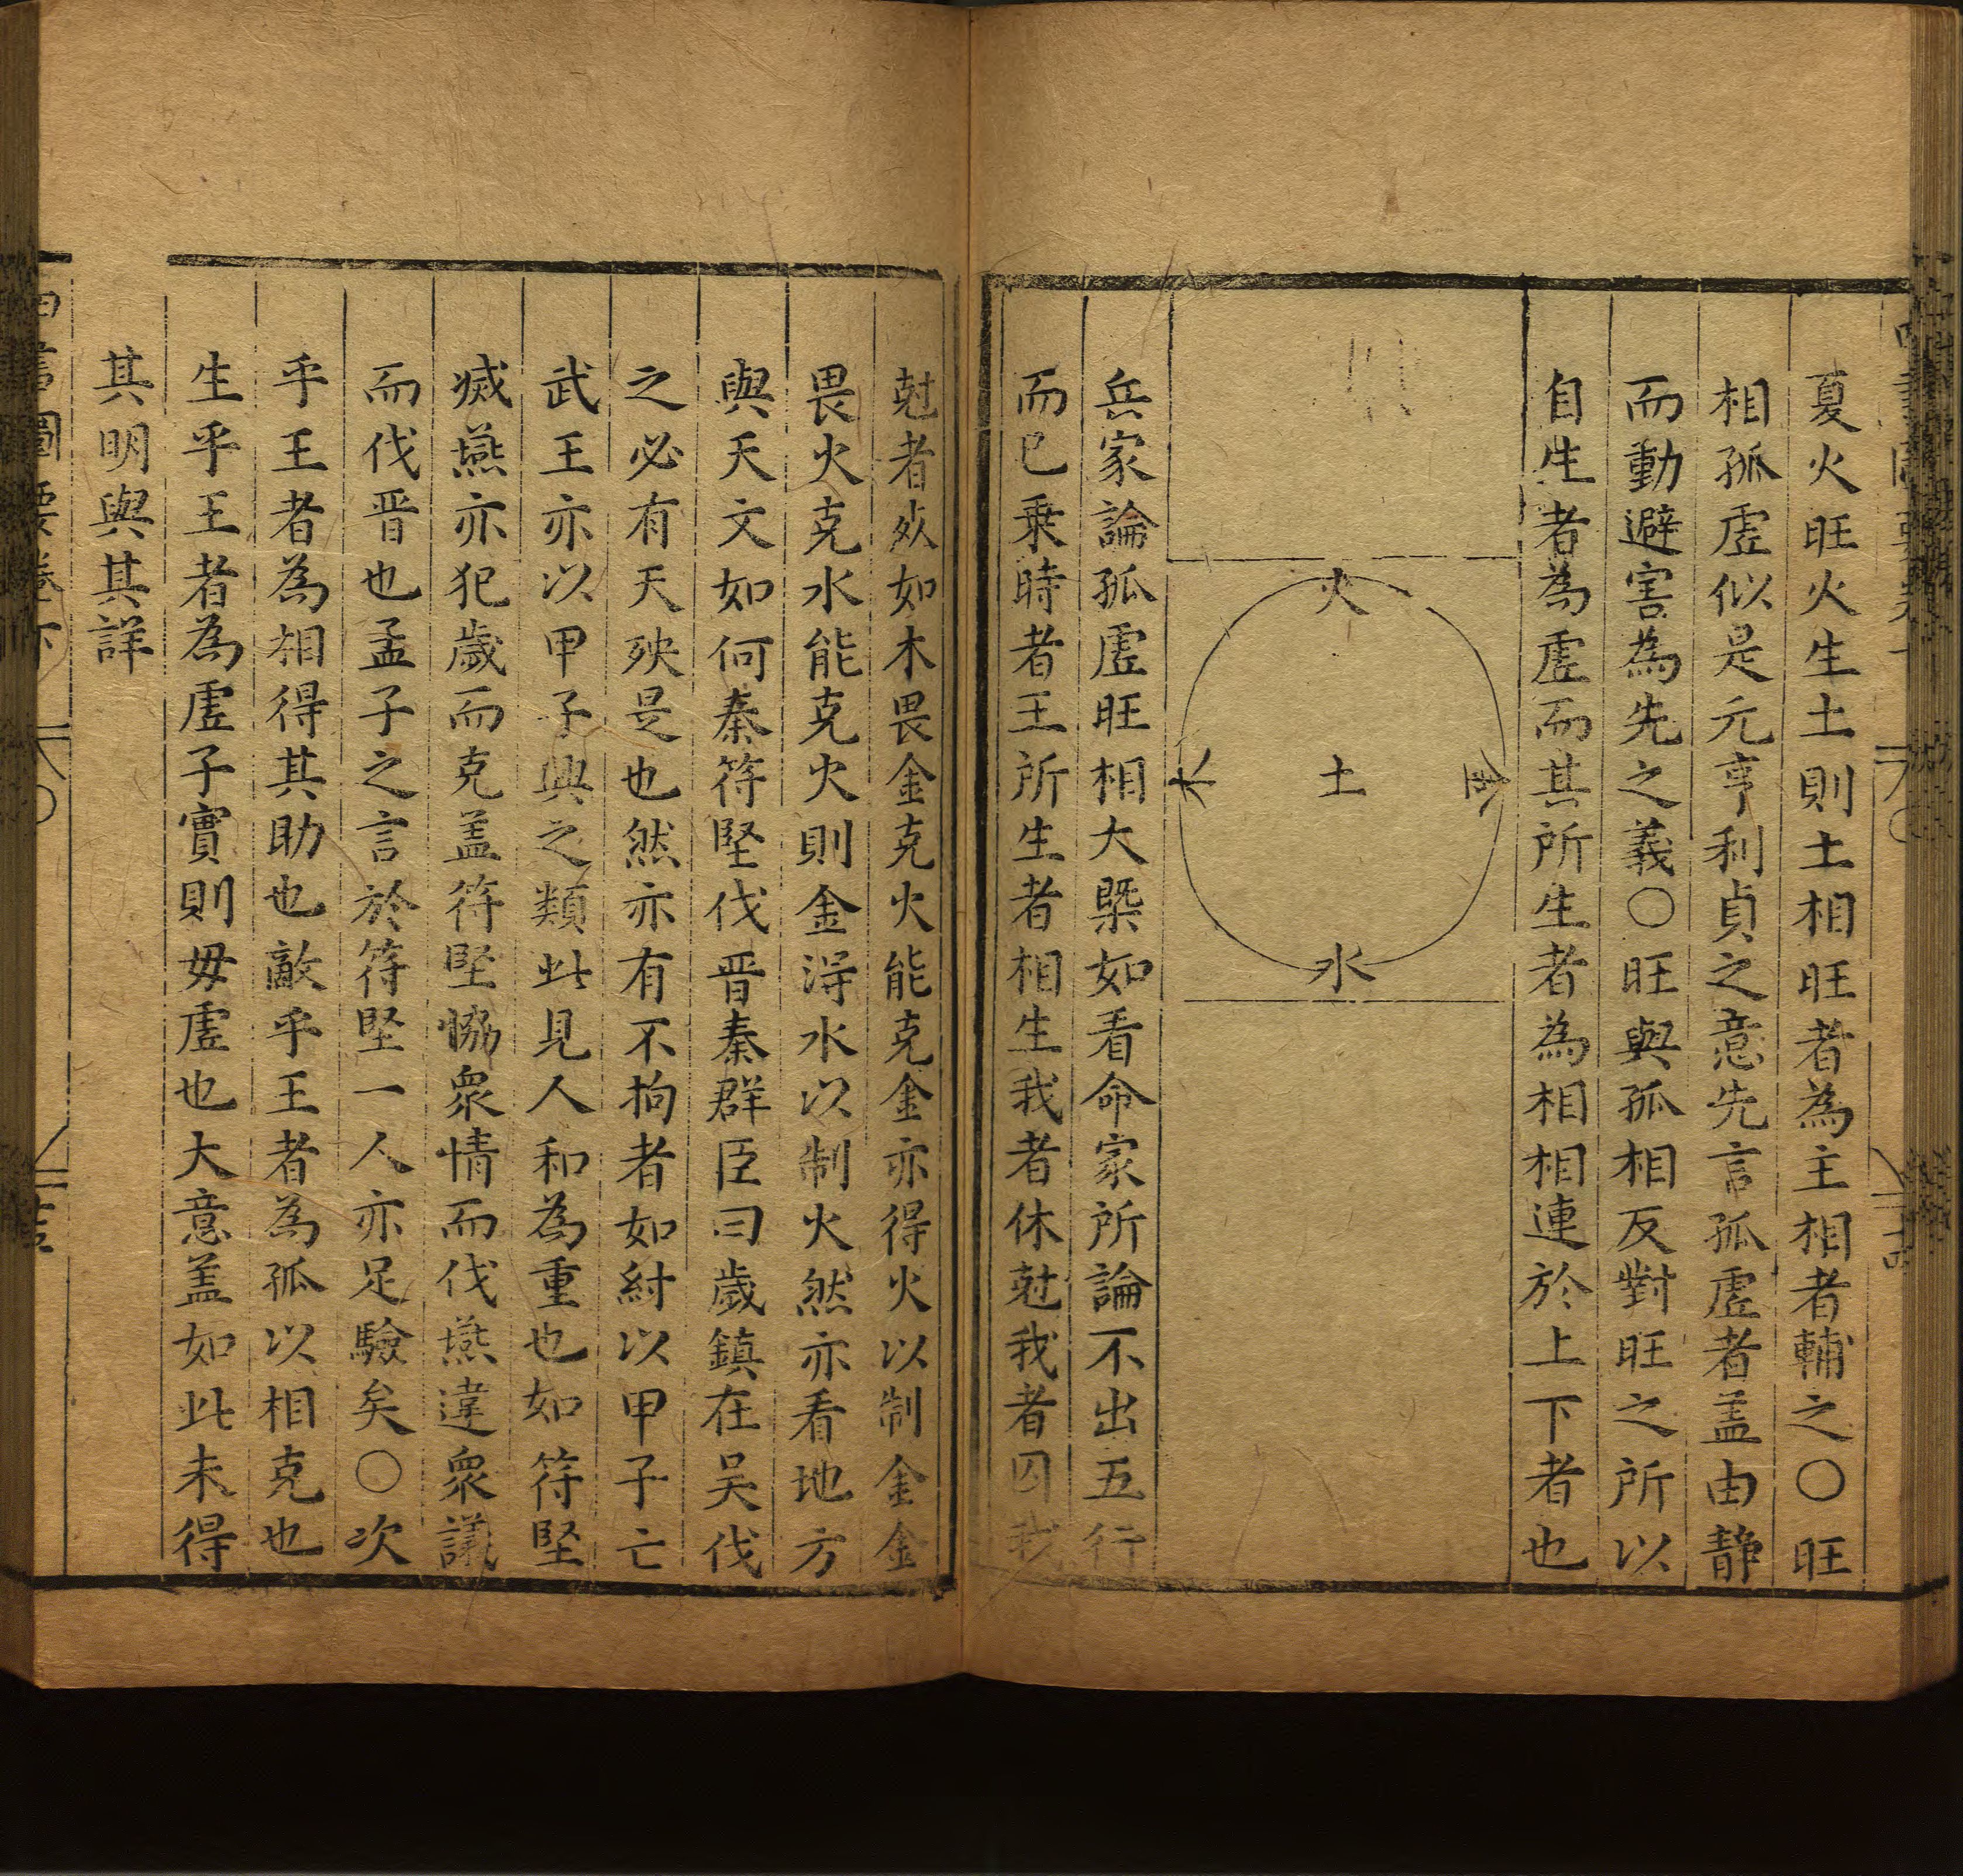 夏火旺火生土則土相旺者為主相者輔之〇旺
相孤虛似是元亨利貞之意先言孤虛者盖由靜
而動避害為先之義〇旺與孤相反對旺之所以
自生者為虛而其所生者為相相連於上下者也
火
金
土
木
水
兵家論孤虛旺相大槩如看命家所論不出五行
而已乗時者王所生者相生我者休尅我者囚我
尅者死如木畏金克火能克金金亦得火以制金金
畏火克水能克火則金淂水以制火然亦看地方
與天文如何秦符堅伐晋秦群臣曰歲鎮在吴伐
之必有天殃是也然亦有不拘者如紂以甲子亡
武王亦以甲子興之類此見人和為重也如符堅
㓕燕亦犯歲而克盖符堅恊衆情而伐燕違衆議
而伐晋也孟子之言於符堅一人亦足驗矣〇次
乎王者為相得其助也敵乎王者為孤以相克也
生乎王者為虛子實則毋虛也大意盖如此未得
其明與其詳
四書圖要卷下